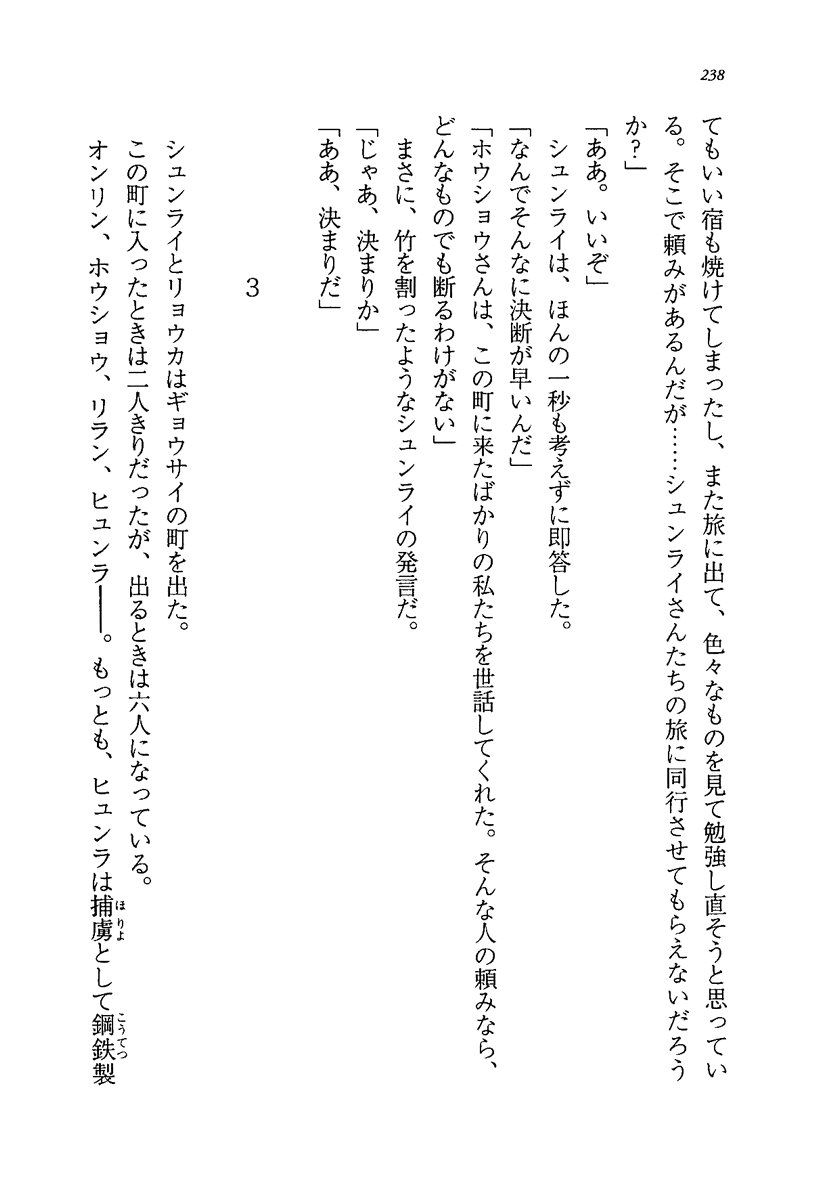 238
てもいい宿も焼けてしまったし、また旅に出て、色々なものを見て勉強し直そうと思ってい
る。そこで頼みがあるんだが……シュンライさんたちの旅に同行させてもらえないだろう
か?」
「ああ。いいぞ」
シュンライは、ほんの一秒も考えずに即答した。
「なんでそんなに決断が早いんだ」
「ホウショウさんは、この町に来たばかりの私たちを世話してくれた。そんな人の頼みなら、
どんなものでも断るわけがない」
まさに、竹を割ったようなシュンライの発言だ。
「じゃあ、決まりか」
「ああ、決まりだ」
3
シュンライとリョウカはギョウサイの町を出た。
この町に入ったときは二人きりだったが、出るときは六人になっている。
オンリン、ホウショウ、リラン、ヒュンラ――。もっとも、ヒュンラは捕虜として鋼鉄製
ほりよ
こうてつ